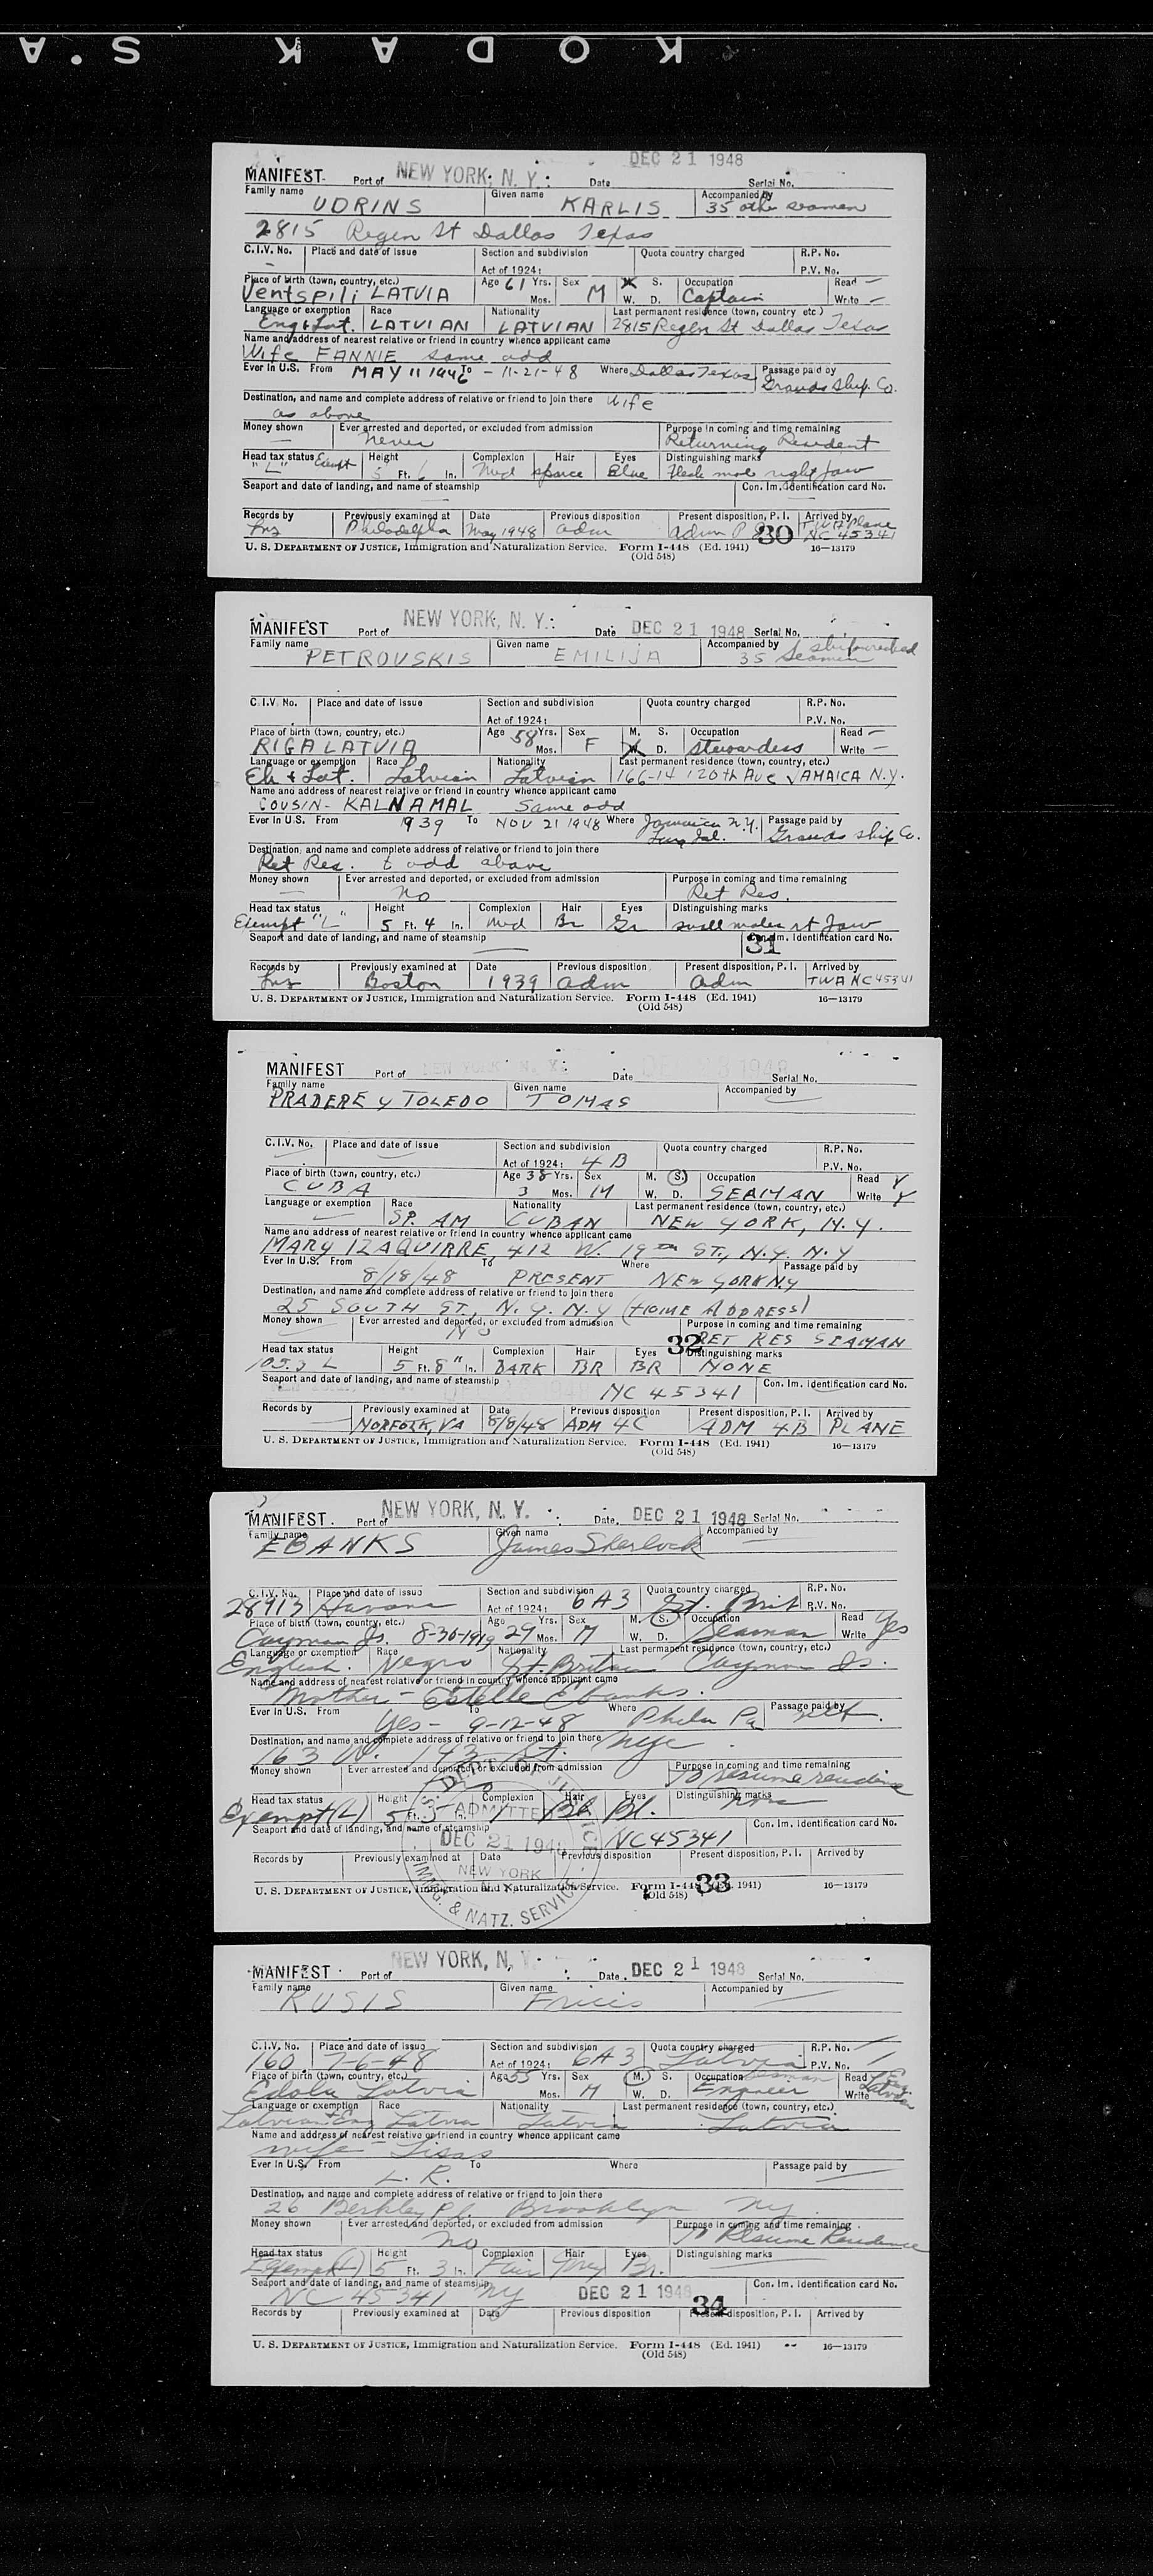 KODAK S.A
DEC 21 1948
MANIFEST Port of NEW YORK, N. Y. Date Serial No.
Family name UDRINS Given name KARLIS Accompanied by 35 other seamen
2815 Regen St Dallas Texas
C.I.V. No. - Place and date of issue Section and subdivision Quota country charged R.P. No.
Act of 1924: P.V. No.
Place of birth (town, country, etc.) Ventspili LATVIA Age 61 Yrs. Mos. Sex M M. S. W. D. Occupation Captain Read — Write —
Language or exemption Eng & Lat. Race LATVIAN Nationality LATVIAN Last permanent residence (town, country etc.) 2815 Regen St Dallas Texas
Name and address of nearest relative or friend in country whence applicant came
Wife FANNIE same add
Ever in U.S. From MAY 11 1946 To - 11-21-48 Where Dallas Texas Passage paid by Ship. Co.
Destination, and name and complete address of relative or friend to join there Wife
as above
Money shown — Ever arrested and deported, or excluded from admission never Purpose in coming and time remaining Returning Resident
Head tax status "L" Exempt Height 5 Ft. 6 In. Complexion Med Hair sparce Eyes Blue Distinguishing marks Flesh mole right jaw
Seaport and date of landing, and name of steamship Con. Im. Identification card No.
Records by Previously examined at Philadelphia Date May 1948 Previous disposition adm Present disposition, P. I. adm 30 Arrived by TWA Plane NC 45341
U. S. DEPARTMENT OF JUSTICE, Immigration and Naturalization Service. Form I-448 (Ed. 1941) 16—13179
(Old 548)
MANIFEST Port of NEW YORK, N. Y. Date DEC 21 1948 Serial No.
Family name PETROVSKIS Given name EMILIJA Accompanied by 35 shipwrecked Seamen
C.I.V. No. Place and date of issue Section and subdivision Quota country charged R.P. No.
Act of 1924: P.V. No.
Place of birth (town, country, etc.) RIGA LATVIA Age 58 Yrs. Mos. Sex F M. S. W. D. Occupation Stewardess Read — Write —
Language or exemption & Lat. Race Latvian Nationality Latvian Last permanent residence (town, country, etc.) 166-14 120th Ave JAMAICA N.Y.
Name and address of nearest relative or friend in country whence applicant came
COUSIN - KALNAMAL Same add
Ever in U.S. From 1939 To NOV 21 1948 Where Jamaica N.Y. Passage paid by Ship Co.
Destination, and name and complete address of relative or friend to join there
Ret Res. to add above
Money shown — Ever arrested and deported, or excluded from admission No Purpose in coming and time remaining Ret Res.
Head tax status Exempt "L" Height 5 Ft. 4 In. Complexion Med Hair Br Eyes Gr Distinguishing marks small moles rt jaw
Seaport and date of landing, and name of steamship — 31 Con. Im. Identification card No.
Records by Previously examined at Boston Date 1939 Previous disposition adm Present disposition, P. I. adm Arrived by TWA NC 45341
U. S. DEPARTMENT OF JUSTICE, Immigration and Naturalization Service. Form I-448 (Ed. 1941) 16—13179
(Old 548)
MANIFEST Port of NEW YORK, N. Y. Date 1948 Serial No.
Family name PRADERE y TOLEDO Given name TOMAS Accompanied by —
C.I.V. No. — Place and date of issue — Section and subdivision Quota country charged R.P. No.
Act of 1924: 4B P.V. No.
Place of birth (town, country, etc.) CUBA Age 38 Yrs. 3 Mos. Sex M M. S. W. D. Occupation SEAMAN Read Y Write Y
Language or exemption — Race SP. AM Nationality CUBAN Last permanent residence (town, country, etc.) NEW YORK, N.Y.
Name and address of nearest relative or friend in country whence applicant came
MARY IZAQUIRRE, 412 W. 19TH ST., N.Y. N.Y
Ever in U.S. From 8/18/48 To PRESENT Where NEW YORK N.Y Passage paid by
Destination, and name and complete address of relative or friend to join there
25 SOUTH ST., N.Y. N.Y (HOME ADDRESS)
Money shown — Ever arrested and deported, or excluded from admission NO Purpose in coming and time remaining 32 RET RES SEAMAN
Head tax status 105.3 L Height 5 Ft. 8" In. Complexion DARK Hair BR Eyes BR Distinguishing marks NONE
Seaport and date of landing, and name of steamship NC 45341 Con. Im. Identification card No. —
Records by — Previously examined at NORFOLK, VA Date 8/8/48 Previous disposition ADM 4C Present disposition, P. I. ADM 4B Arrived by PLANE
U. S. DEPARTMENT OF JUSTICE, Immigration and Naturalization Service. Form I-448 (Ed. 1941) 16—13179
(Old 548)
MANIFEST Port of NEW YORK, N. Y. Date DEC 21 1948 Serial No.
Family name EBANKS Given name James Sherlock Accompanied by —
C.I.V. No. 28913 Place and date of issue Havana Section and subdivision Quota country charged Gt. Brit R.P. No.
Act of 1924: 6A3 P.V. No.
Place of birth (town, country, etc.) Cayman Is. 8-30-1919 Age 29 Yrs. Mos. Sex M M. S. W. D. Occupation Seaman Read Write Yes
Language or exemption English Race Negro Nationality Gt. Britain Last permanent residence (town, country, etc.) Cayman Is.
Name and address of nearest relative or friend in country whence applicant came
Mother - Estelle Ebanks.
Ever in U.S. From Yes - To 9-12-48 Where Phila Pa Passage paid by
Destination, and name and complete address of relative or friend to join there
163 W. 143 St. NYC
Money shown Ever arrested and deported, or excluded from admission No Purpose in coming and time remaining To resume residence
Head tax status Exempt (L) Height 5 Ft. 5 In. Complexion Hair Bl Eyes Bl. Distinguishing marks None
Seaport and date of landing, and name of steamship NC 45341 Con. Im. Identification card No.
U.S. DEPT. OF JUSTICE ADMITTED DEC 21 1948 NEW YORK N.Y. IMMG. & NATZ. SERVICE
Records by Previously examined at Date Previous disposition Present disposition, P. I. Arrived by
U. S. DEPARTMENT OF JUSTICE, Immigration and Naturalization Service. Form I-448 (Ed. 1941) 33 16—13179
(Old 548)
MANIFEST Port of NEW YORK, N. Y. Date DEC 21 1948 Serial No.
Family name RUSIS Given name Fricis Accompanied by —
C.I.V. No. 160 Place and date of issue 7-6-48 Section and subdivision Quota country charged Latvia R.P. No. /
Act of 1924: 6A3 P.V. No. /
Place of birth (town, country, etc.) Edole Latvia Age 55 Yrs. Mos. Sex M M. S. W. D. Occupation Seaman Engineer Read Eng. Write Latvian
Language or exemption Latvian + Eng Race Latvia Nationality Latvia Last permanent residence (town, country, etc.) Latvia
Name and address of nearest relative or friend in country whence applicant came
wife - Lisas
Ever in U.S. From L. R. To Where Passage paid by —
Destination, and name and complete address of relative or friend to join there
26 Berkley Pl. Brooklyn NY
Money shown Ever arrested and deported, or excluded from admission No Purpose in coming and time remaining To Resume Residence
Head tax status Exempt (L) Height 5 Ft. 3 In. Complexion Fair Hair Grey Eyes Br. Distinguishing marks —
Seaport and date of landing, and name of steamship NC 45341 NY DEC 21 1948 34 Con. Im. Identification card No.
Records by Previously examined at Date Previous disposition Present disposition, P. I. Arrived by
U. S. DEPARTMENT OF JUSTICE, Immigration and Naturalization Service. Form I-448 (Ed. 1941) 16—13179
(Old 548)